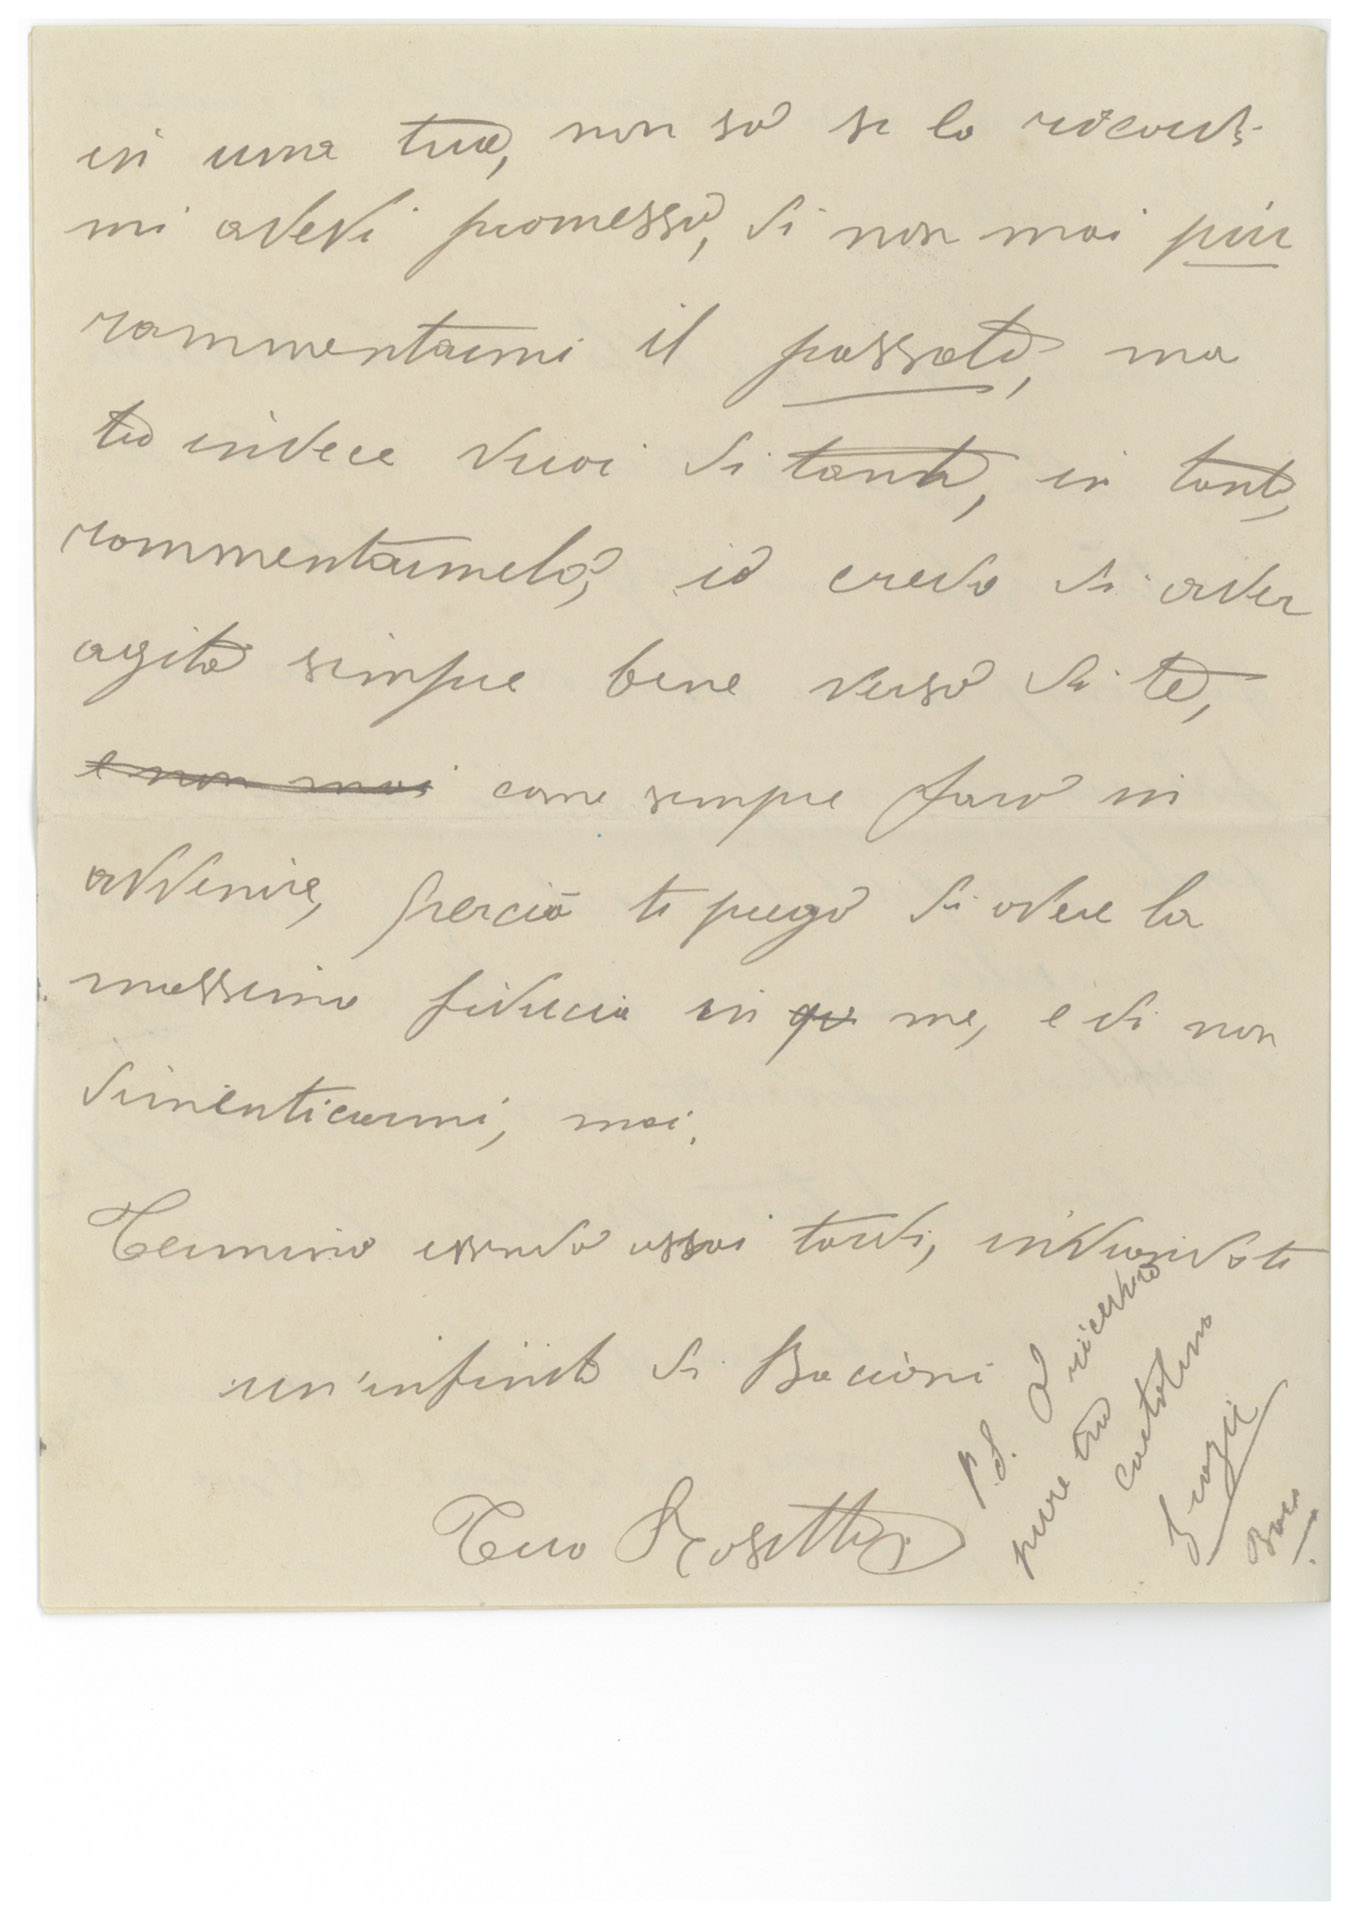 in una tua, non sò se lo ricordi
mi avevi promesso, di non mai più
rammentarmi il passato, ma
tu invece vuoi di tanto, in tanto,
rammentarmelo, io credo di aver
agito sempre bene verso di te,
e non mai come sempre farò in
avvenire, perciò ti prego di avere la
massima fiducia in me, e di non
dimenticarmi, mai.
Termino essendo assai tardi, inviandoti
un'infinità di Bacioni
Tua Rosetta
P.S. O ricevuto
pure tua
cartolina
Grazie